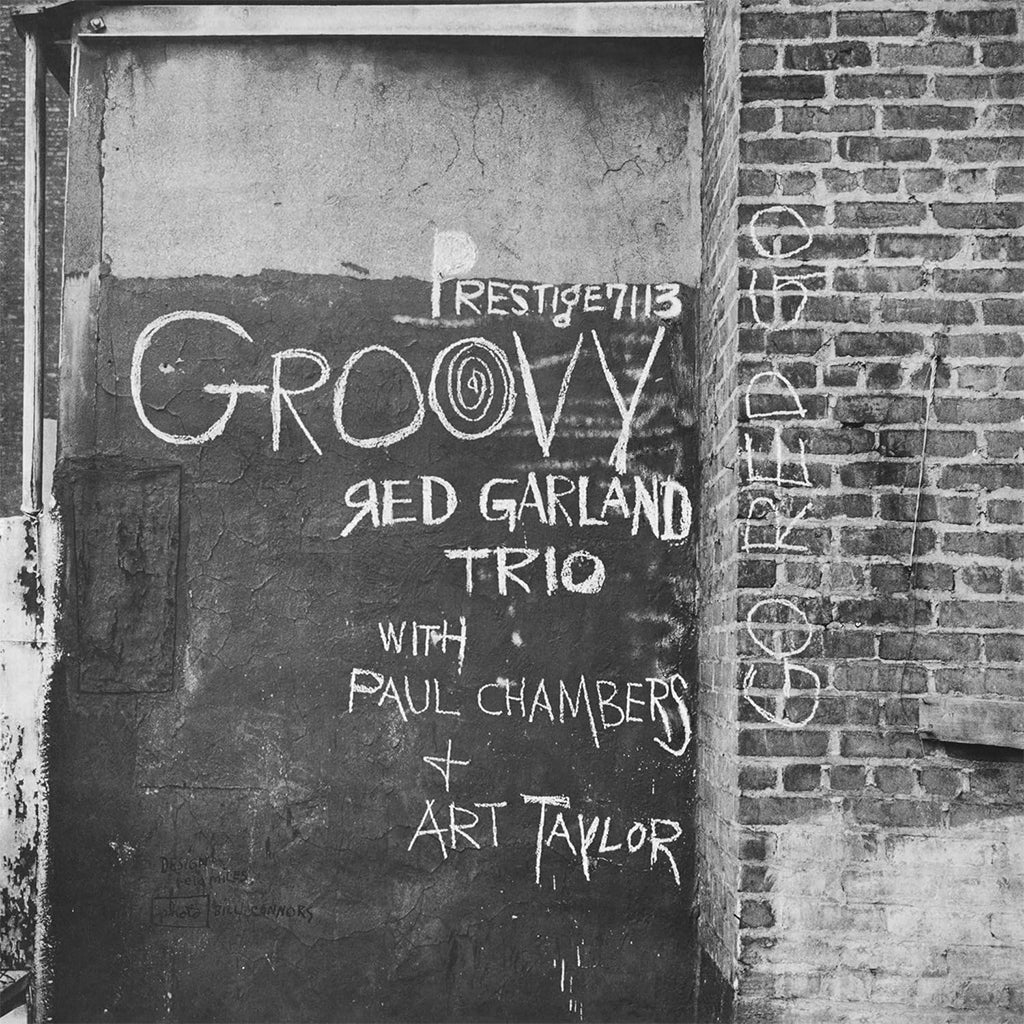 PRESTigE7113
GROOVY
RED GARLAND
TRIO
WITH
PAUL CHAMBERS
+
ART TAYLOR
GO RED GO
DESIGN
MILES
photo BILL CONNORS